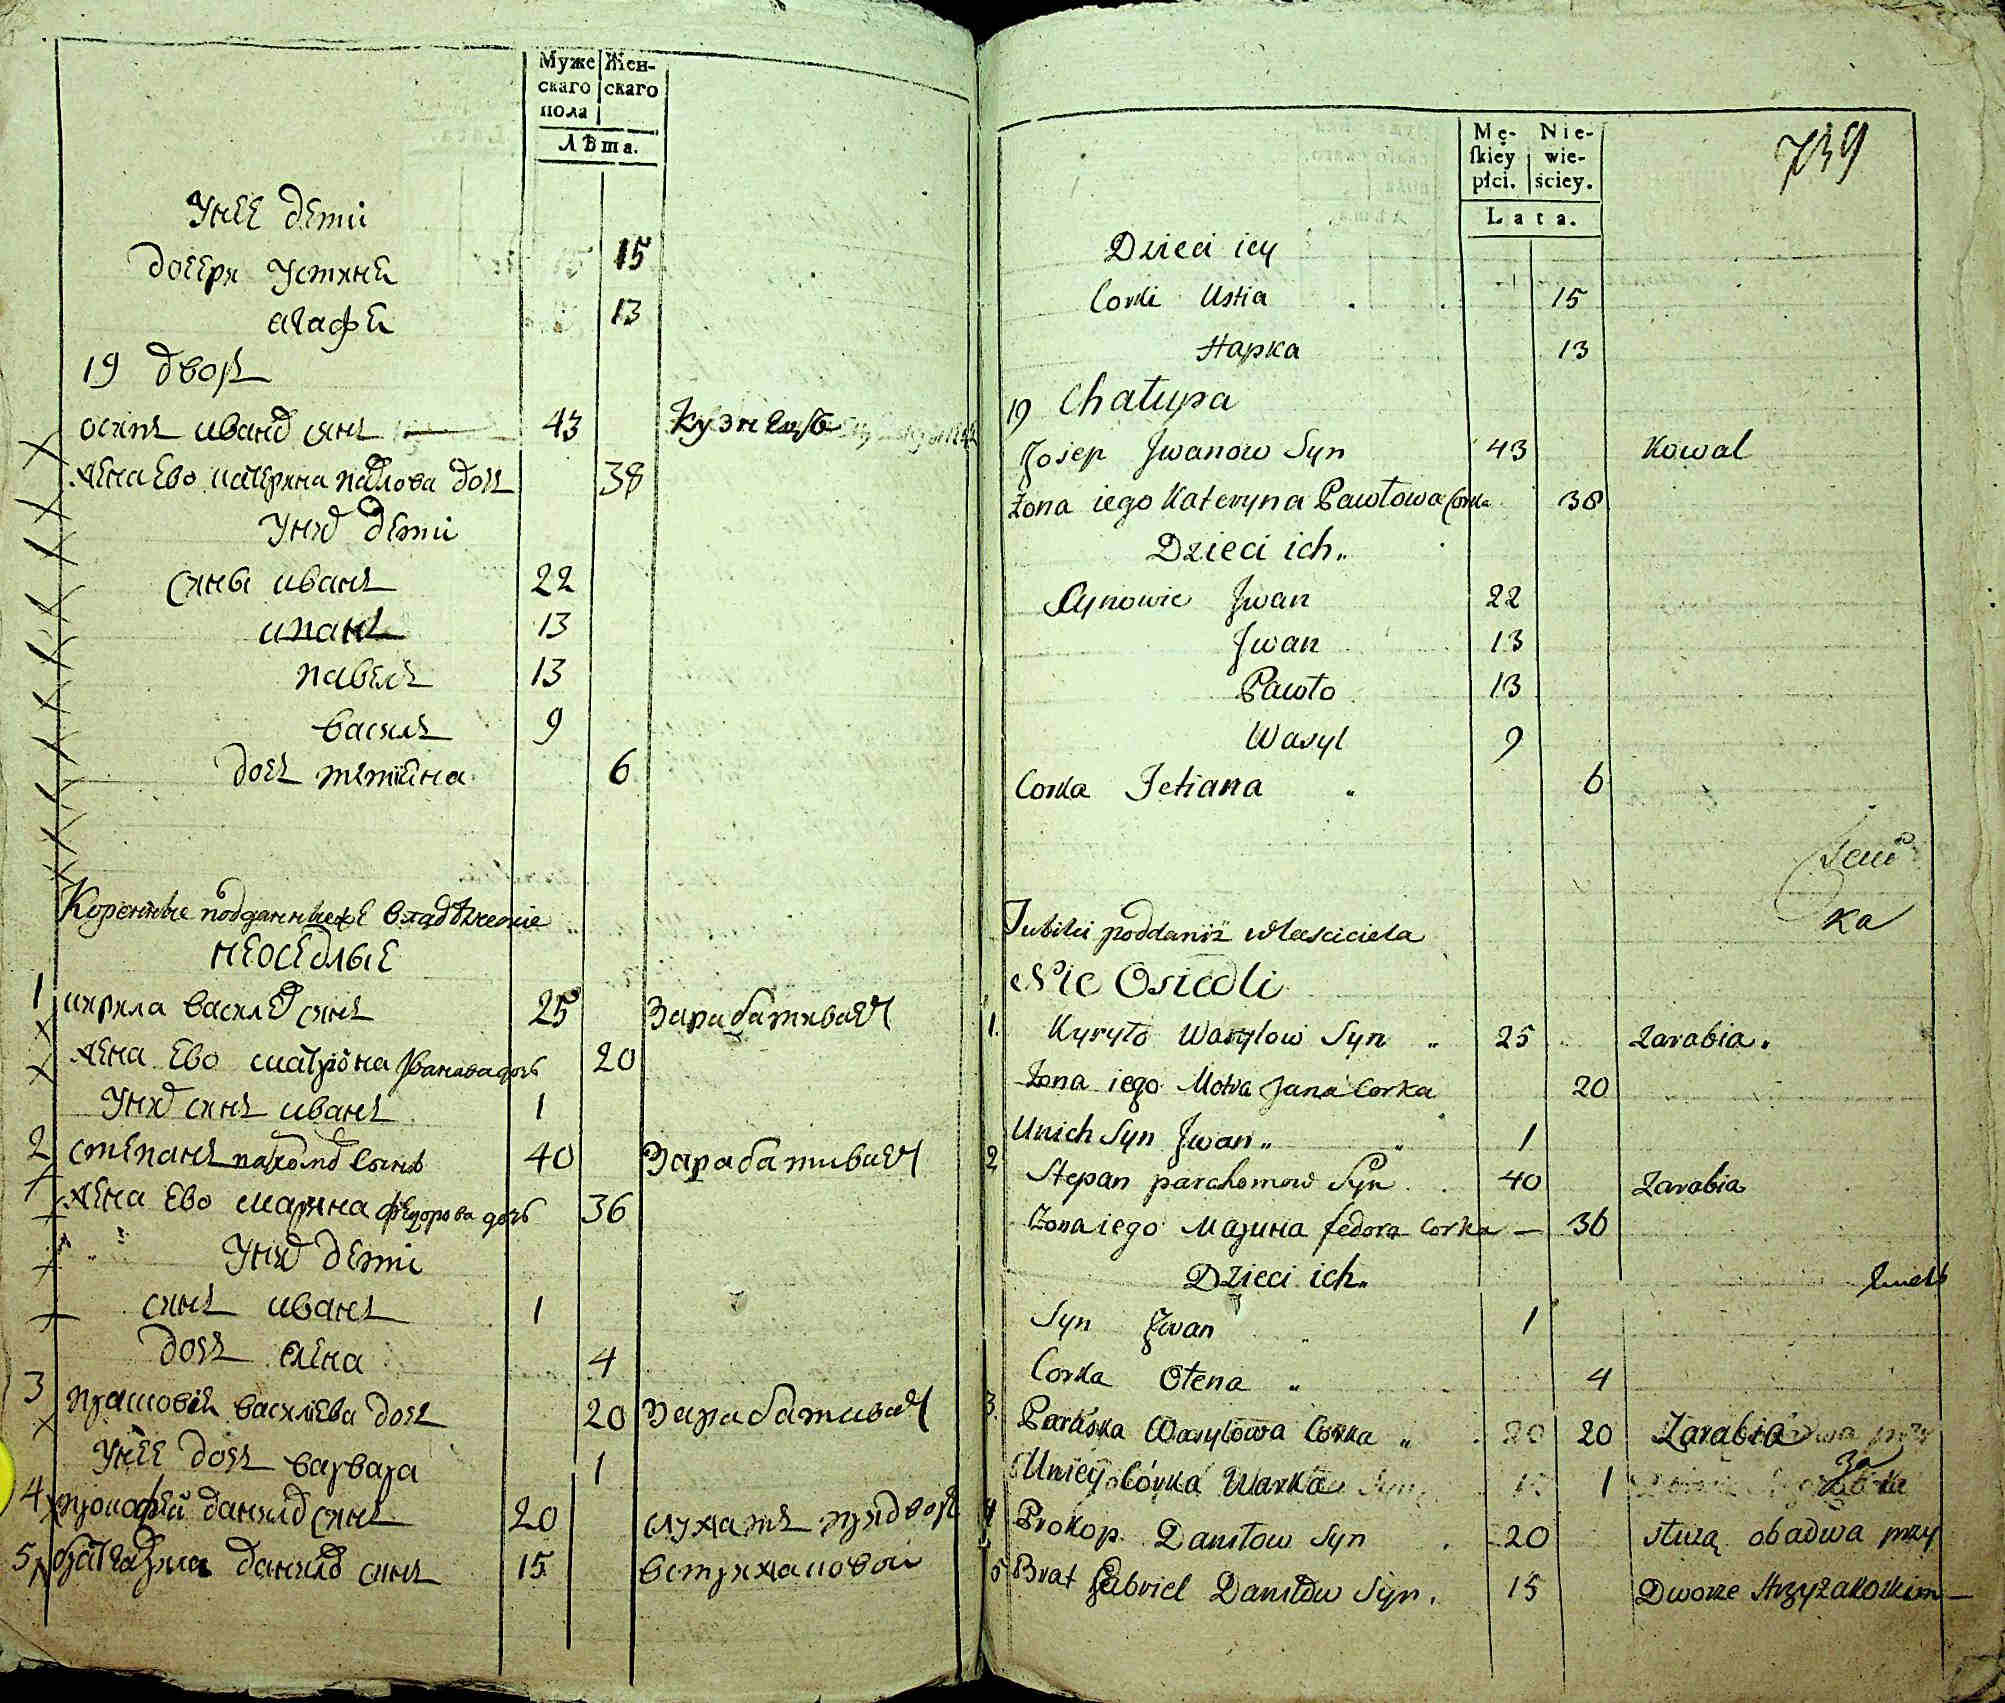 Муже Жен-
скаго скаго
пола
Лѣта.
Унее дети
дочеря Устяня 15
агафя 13
19 дворъ
осипъ иванов сынъ 43 Кузнецъ
жена ево катеряна павлова дочь 38
Уних дети
сяны иванъ 22
иванъ 13
павелъ 13
василь 9
дочь тетияна 6
Коренные подданные владѣлческие
неоседлые
1 кирила василев сынъ 25 Зарабативает
жена ево матрiона Иванова дочь 20
Уних сынъ иванъ 1
2 степанъ пархомов сынъ 40 Зарабативает
жена ево маряна федорова дочь 36
Уних дети
сынъ иванъ 1
дочь елена 4
3 прасковiя василева дочь 20 Зарабативает
Унее дочь варвара 1
4 прокофей данилов сынъ 20 служатъ придворѣ
5 брат гаврила данилов сынъ 15 встрижаковой
739
Mę- Nie-
skiey wie-
płci. ściey.
Lata.
Dzieci iey
Corki Ustia 15
Hapka 13
19 Chałupa
Josep Jwanow Syn 43 Kowal
Żona iego Kateryna Pawłowa Corka 38
Dzieci ich
Synowie Jwan 22
Jwan 13
Pawło 13
Wasyl 9
Corka Tetiana 6
ka
poddanii własciciela
Nie Osiedli
1. Kyryło Wasylow Syn 25 Zarabia.
Żona iego Motra Jana Corka 20
Unich Syn Jwan 1
2 Stepan parchomow Syn 40 Zarabia
Żona iego Maryna fedora Corka — 36
Dzieci ich
Syn Jwan 1
Corka Ołena 4
3. Paraska Wasylowa Corka 20 Zarabia
Uniey córka Warka 1
4 Prokop Daniłow Syn 20 służą obadwa przy
5 Brat Gabriel Daniłow Syn. 15 Dworze Strzyżakoskim —